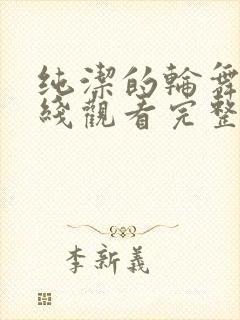 纯潔的輪舞
綫觀看完整
李新義